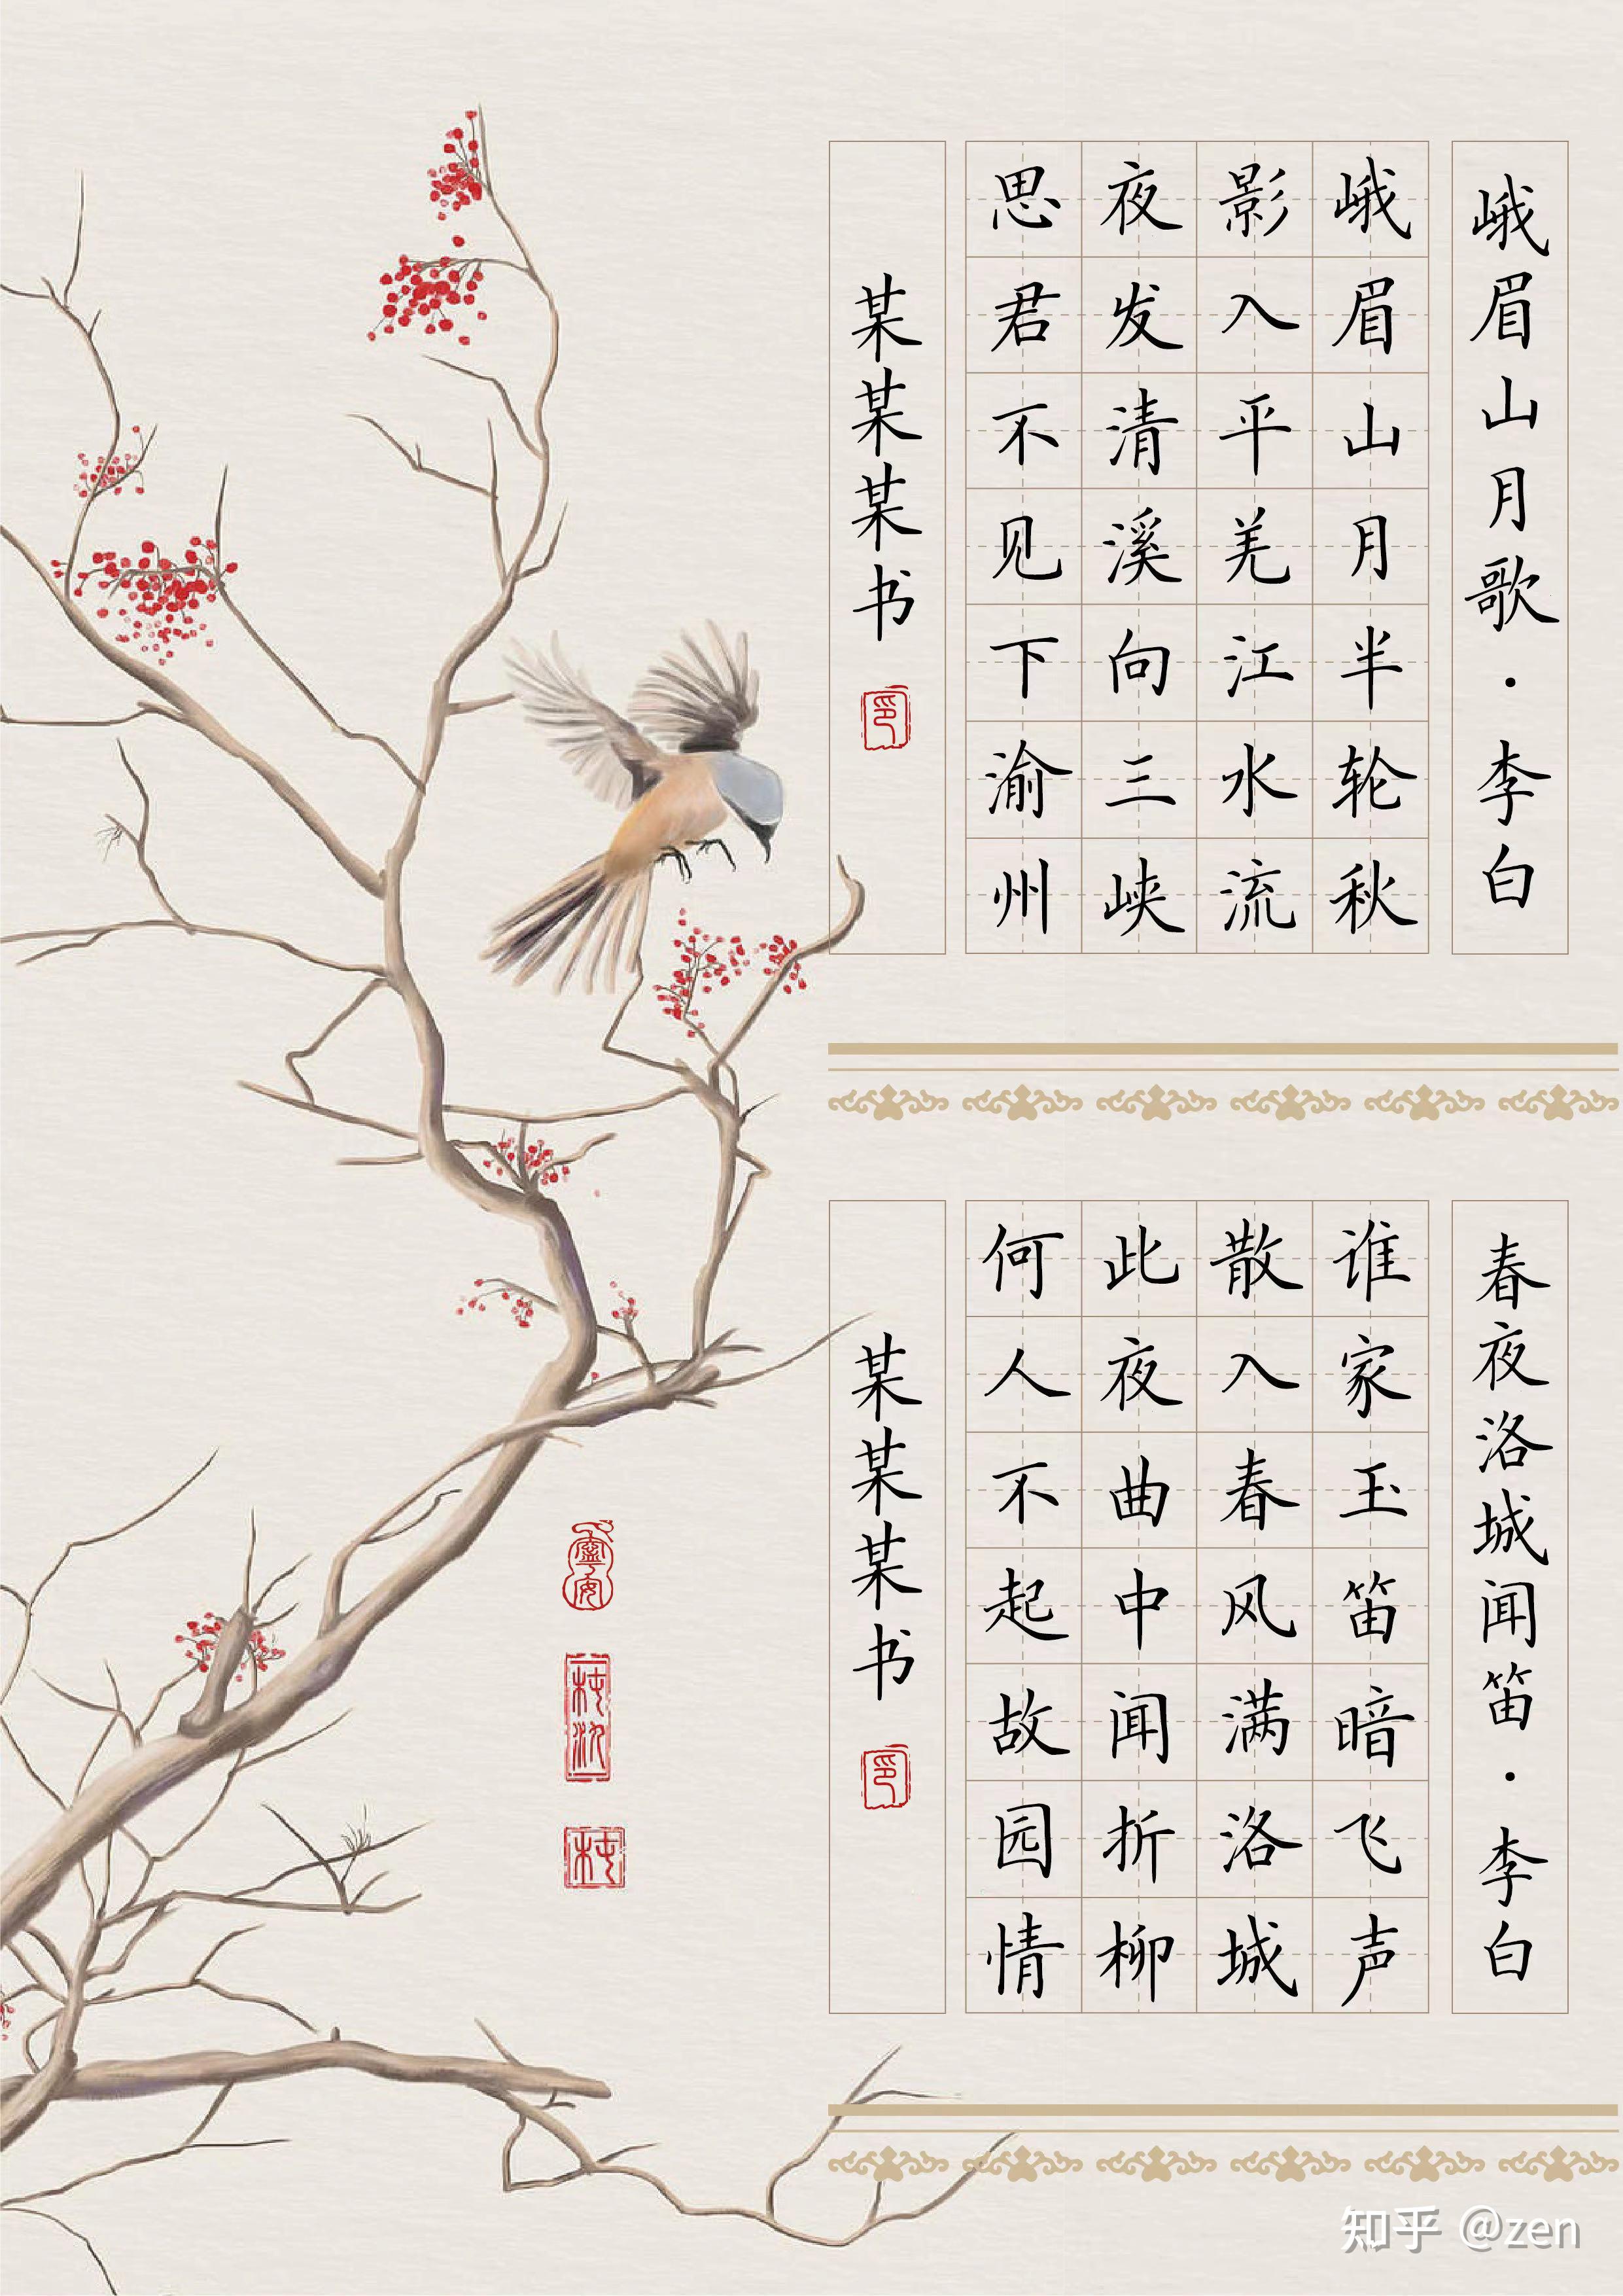 峨眉山月歌·李白
峨眉山月半轮秋
影入平羌江水流
夜发清溪向三峡
思君不见下渝州
某某某书
印
春夜洛城闻笛·李白
谁家玉笛暗飞声
散入春风满洛城
此夜曲中闻折柳
何人不起故园情
某某某书
印
知乎 @zen